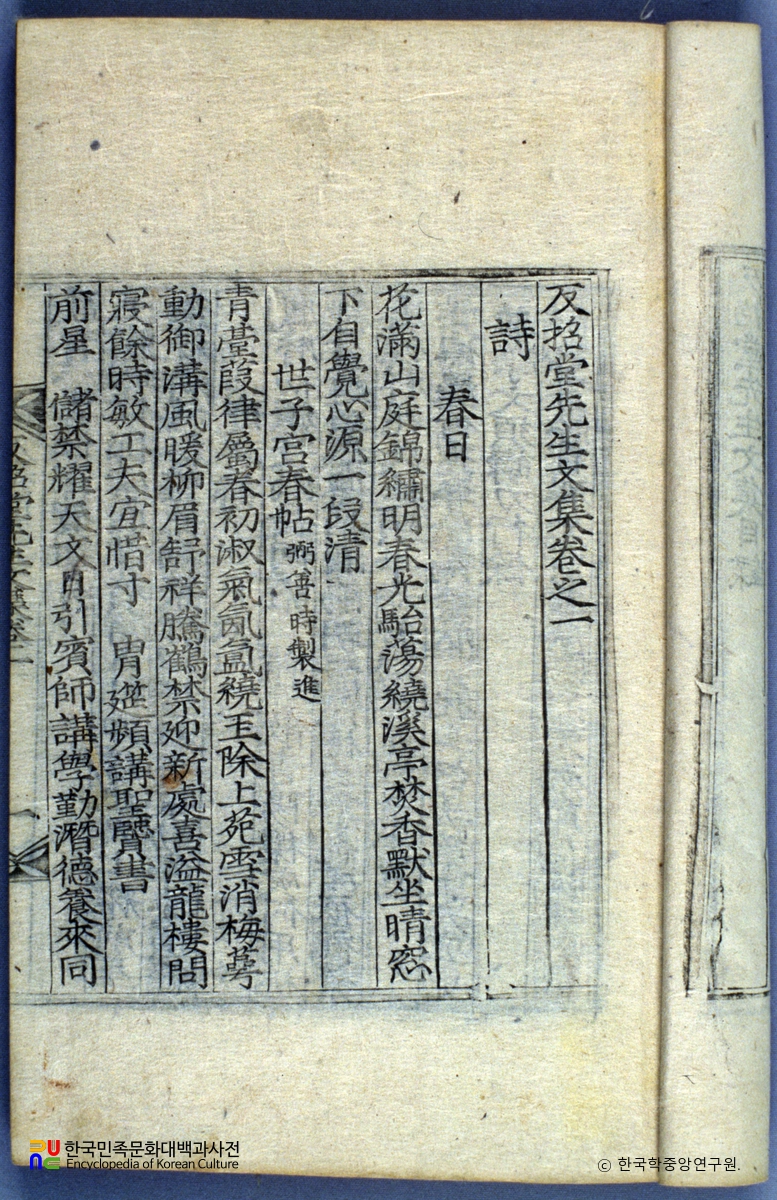 反招堂先生文集卷之一
詩
春日
花滿山庭錦繡明春光駘蕩繞溪亭焚香默坐晴窓
下自覺心源一段清
世子宮春帖 弼善時製進
青臺葭律屬春初淑氣氤氳繞玉除上苑雪消梅萼
動御溝風暖柳眉舒祥騰鶴禁迎新處喜溢龍樓問
寢餘時敏工夫宜惜寸 胄筵頻講聖賢書
前星 儲禁耀天文自引賓師講學勤潛德養來同
한국민족문화대백과사전
Encyclopedia of Korean Culture
ⓒ 한국학중앙연구원.